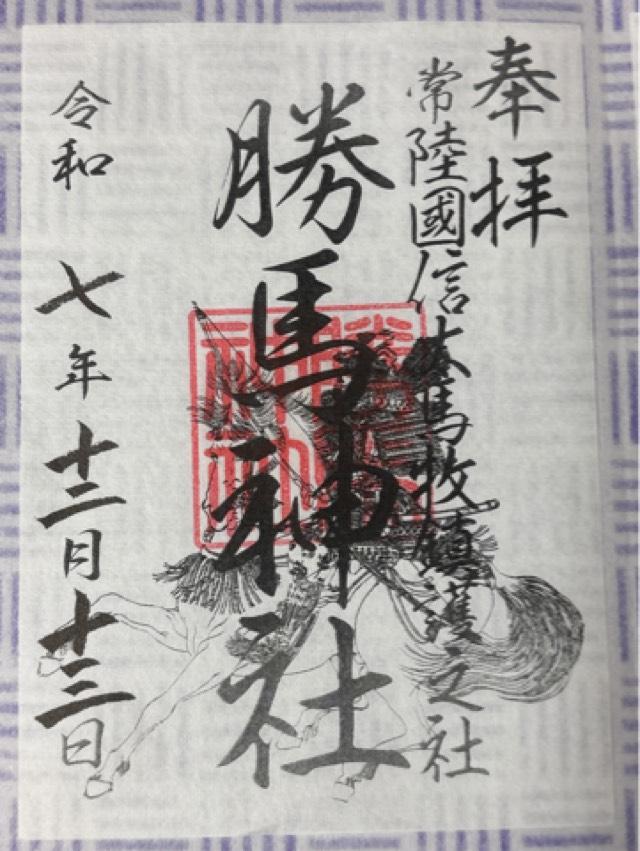 奉拝
常陸國信太馬牧鎮護之社
勝馬神社
勝馬神社
令和七年十二月十三日